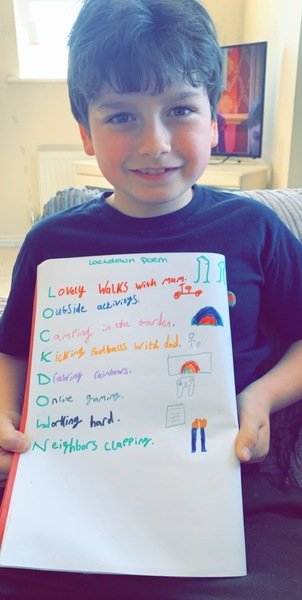 Lockdown Poem
Lovely Walks with mum.
Outside activitys.
Camping in the garden.
Kicking footballs with dad.
Drawing rainbows.
Online gaming.
Working hard.
Neighbors clapping.